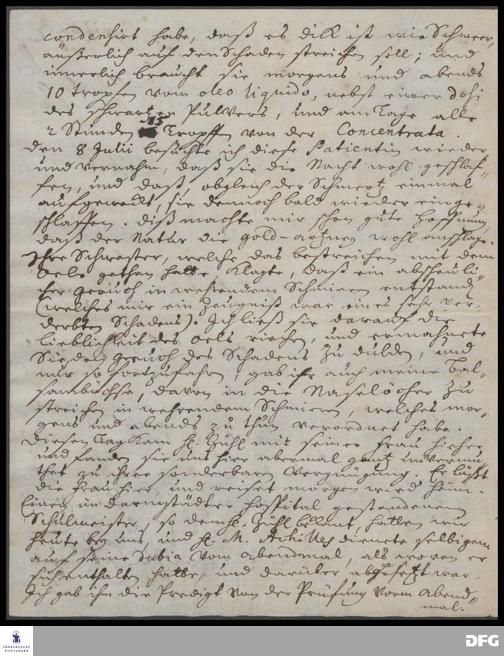 condensirt habe, daß es dick ist wie Schmeer,
äußerlich auf den Schaden streichen soll; und
innerlich braucht sie morgens und abends
10 tropfen vom oleo liquido, nebst einer Dosi
des schwartzen Pulvers, und am Tage alle
2 Stunden 15 Tropffen von der Concentrata.
Den 8 Julii besuchte ich diese Patientin wieder
und vernahm, daß sie die Nacht wohl geschlaf-
fen, und daß, obgleich der Schmertz einmal
aufgeweckt, sie dennoch bald wieder einge-
schlaffen. Diß machte mir schon gute Hoffnung,
daß der Natur die gold-artzney wohl anschlage.
Ihre Schwester, welche das bestreichen mit dem
Oele gethan hatte, klagte, daß ein abscheuli-
cher Geruch in währendem Schmieren entstand
(welches mir ein Zeugniß war eines sehr ver-
derbten Schadens). Ich ließ sie darauf die
Lieblichkeit des Oels riechen, und ermahnete
Sie, den Geruch des Schadens zu dulden, und
nur so fortzufahren, gab ihr auch meine Bal-
sambüchse, davon in die Naselöcher zu
streichen in währendem Schmieren, welches mor-
gens und abends zu thun verordnet habe.
Diesen Tag kam H. Bühl mit seiner Frau hieher
und fanden sie uns hier abermal gantz unvermu-
thet zu ihrer sonderbaren Vergnügung. Er läßt
die Frau hier, und reiset morgen wied. heim.
Einen im Darmstädter Hospital gestandenen
Schulmeister, so dem H. Bühl bekant, hatten wir
heute bey uns, und H. M. dienete selbigem
auf seine dubia vom Abendmal, als wovon er
sich enthalten hatte, und darüber abgesetzt war.
Ich gab ihm die Predigt von der Prüfung vorm Abend-
mal.
FRANCKESCHE
STIFTUNGEN
DFG